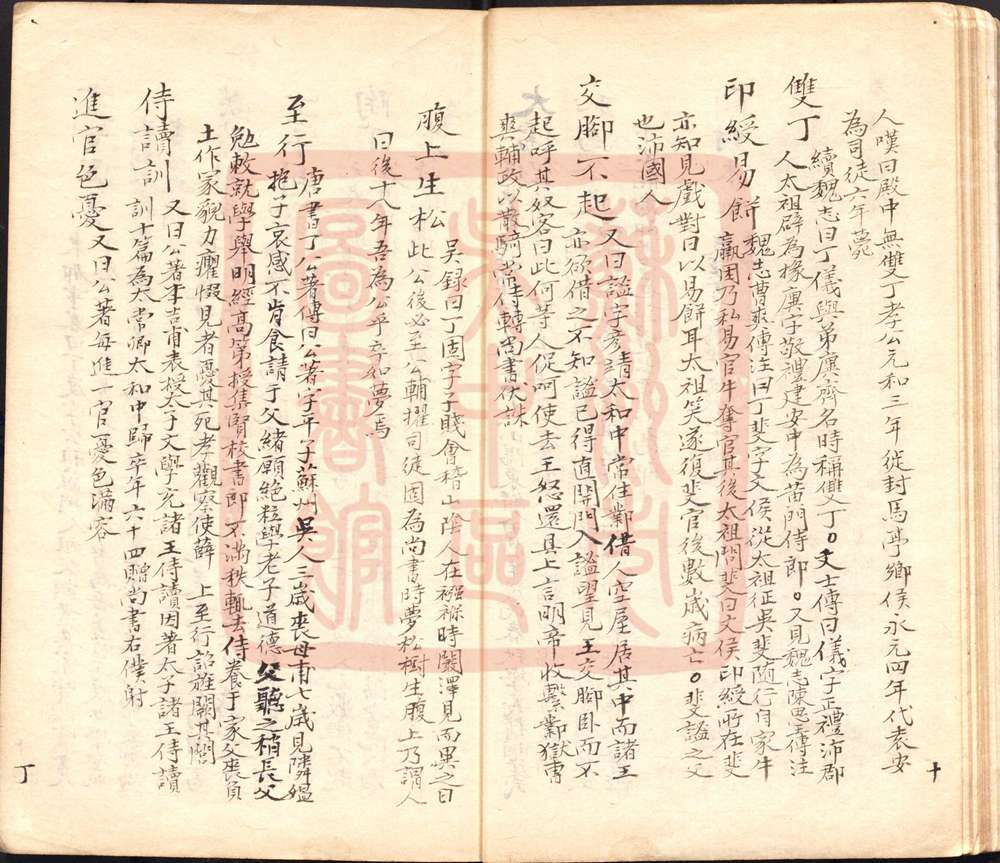 人嘆曰殿中無雙丁孝公元和三年徙封馬亭鄉侯永元四年代袁安
為司徒六年薨
雙丁 續魏志曰丁儀與弟廙齊名時稱雙丁〇文士傳曰儀字正禮沛郡
人太祖辟為掾廙字敬禮建安中為黃門侍郎〇又見魏志陳思傳注
印綬易餅 魏志曹爽傳注曰丁斐字文侯從太祖征吳斐隨行自家牛
羸困乃私易官牛奪官其後太祖問斐曰文侯印綬所在斐
亦知見戲對曰以易餅耳太祖笑遂復斐官後數歲病亡〇斐謐之父
也沛國人
交腳不起 又曰謐字彥靖太和中常住鄴借人空屋居其中而諸王
亦欲借之不知謐已得直開門入謐望見王交腳卧而不
起呼其奴客曰此何等人促呵使去王怒還具上言明帝收繫鄴獄曹
爽輔政以散騎常侍轉尚書伏誅
腹上生松 吳録曰丁固字子賤會稽山陰人在襁褓時闞澤見而異之曰
此公後必至公輔擢司徒固為尚書時夢松樹生腹上乃謂人
曰後十八年吾為公乎卒如夢焉
至行 唐書丁公著傳曰公著字平子蘇州吳人三歲喪母甫七歲見隣媼
抱子哀感不肯食請于父緒願絶粒學老子道德父聽之稍長父
勉敕就學舉明經高第授集賢校書郎不滿秩輒去侍養于家父喪負
土作家貌力癯惙見者憂其死孝觀察使薛 上至行詔旌闕其閭
侍讀訓 又曰公著李吉甫表授太子文學充諸王侍讀因著太子諸王侍讀
訓十篇為太常卿太和中歸卒年六十四贈尚書右僕射
進官色憂 又曰公著每進一官憂色滿容
十
丁